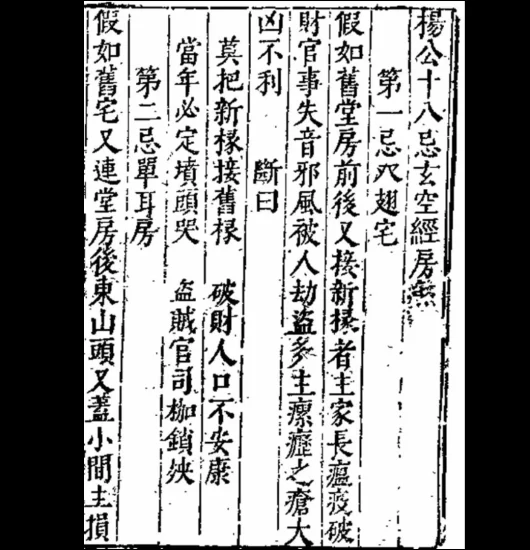 楊公十八忌玄空經房無
第一忌八翅宅
假如舊堂房前後又接新椽者主家長瘟疫破
財官事失音邪風被人劫盜多主瘰癧之瘡大
凶不利 斷曰
莫把新椽接舊椽 破財人口不安康
當年必定墳頭哭 盜賊官司枷鎖殃
第二忌單耳房
假如舊宅又連堂房後東山頭又蓋小間主損